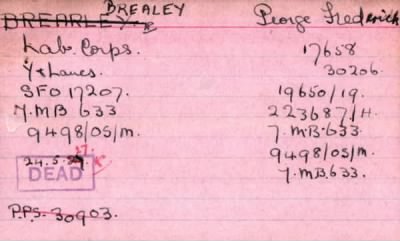 BREALEY
BREARLEY George Frederick
Lab. Corps. 17658
Y & Lancs. 30206.
SFO 17207. 19650/19.
7.MB 633 223687/H.
9498/OS/M. 7.MB.633.
24.5. 9498/OS/M.
DEAD 7.MB.633.
P.P.S. 30903.